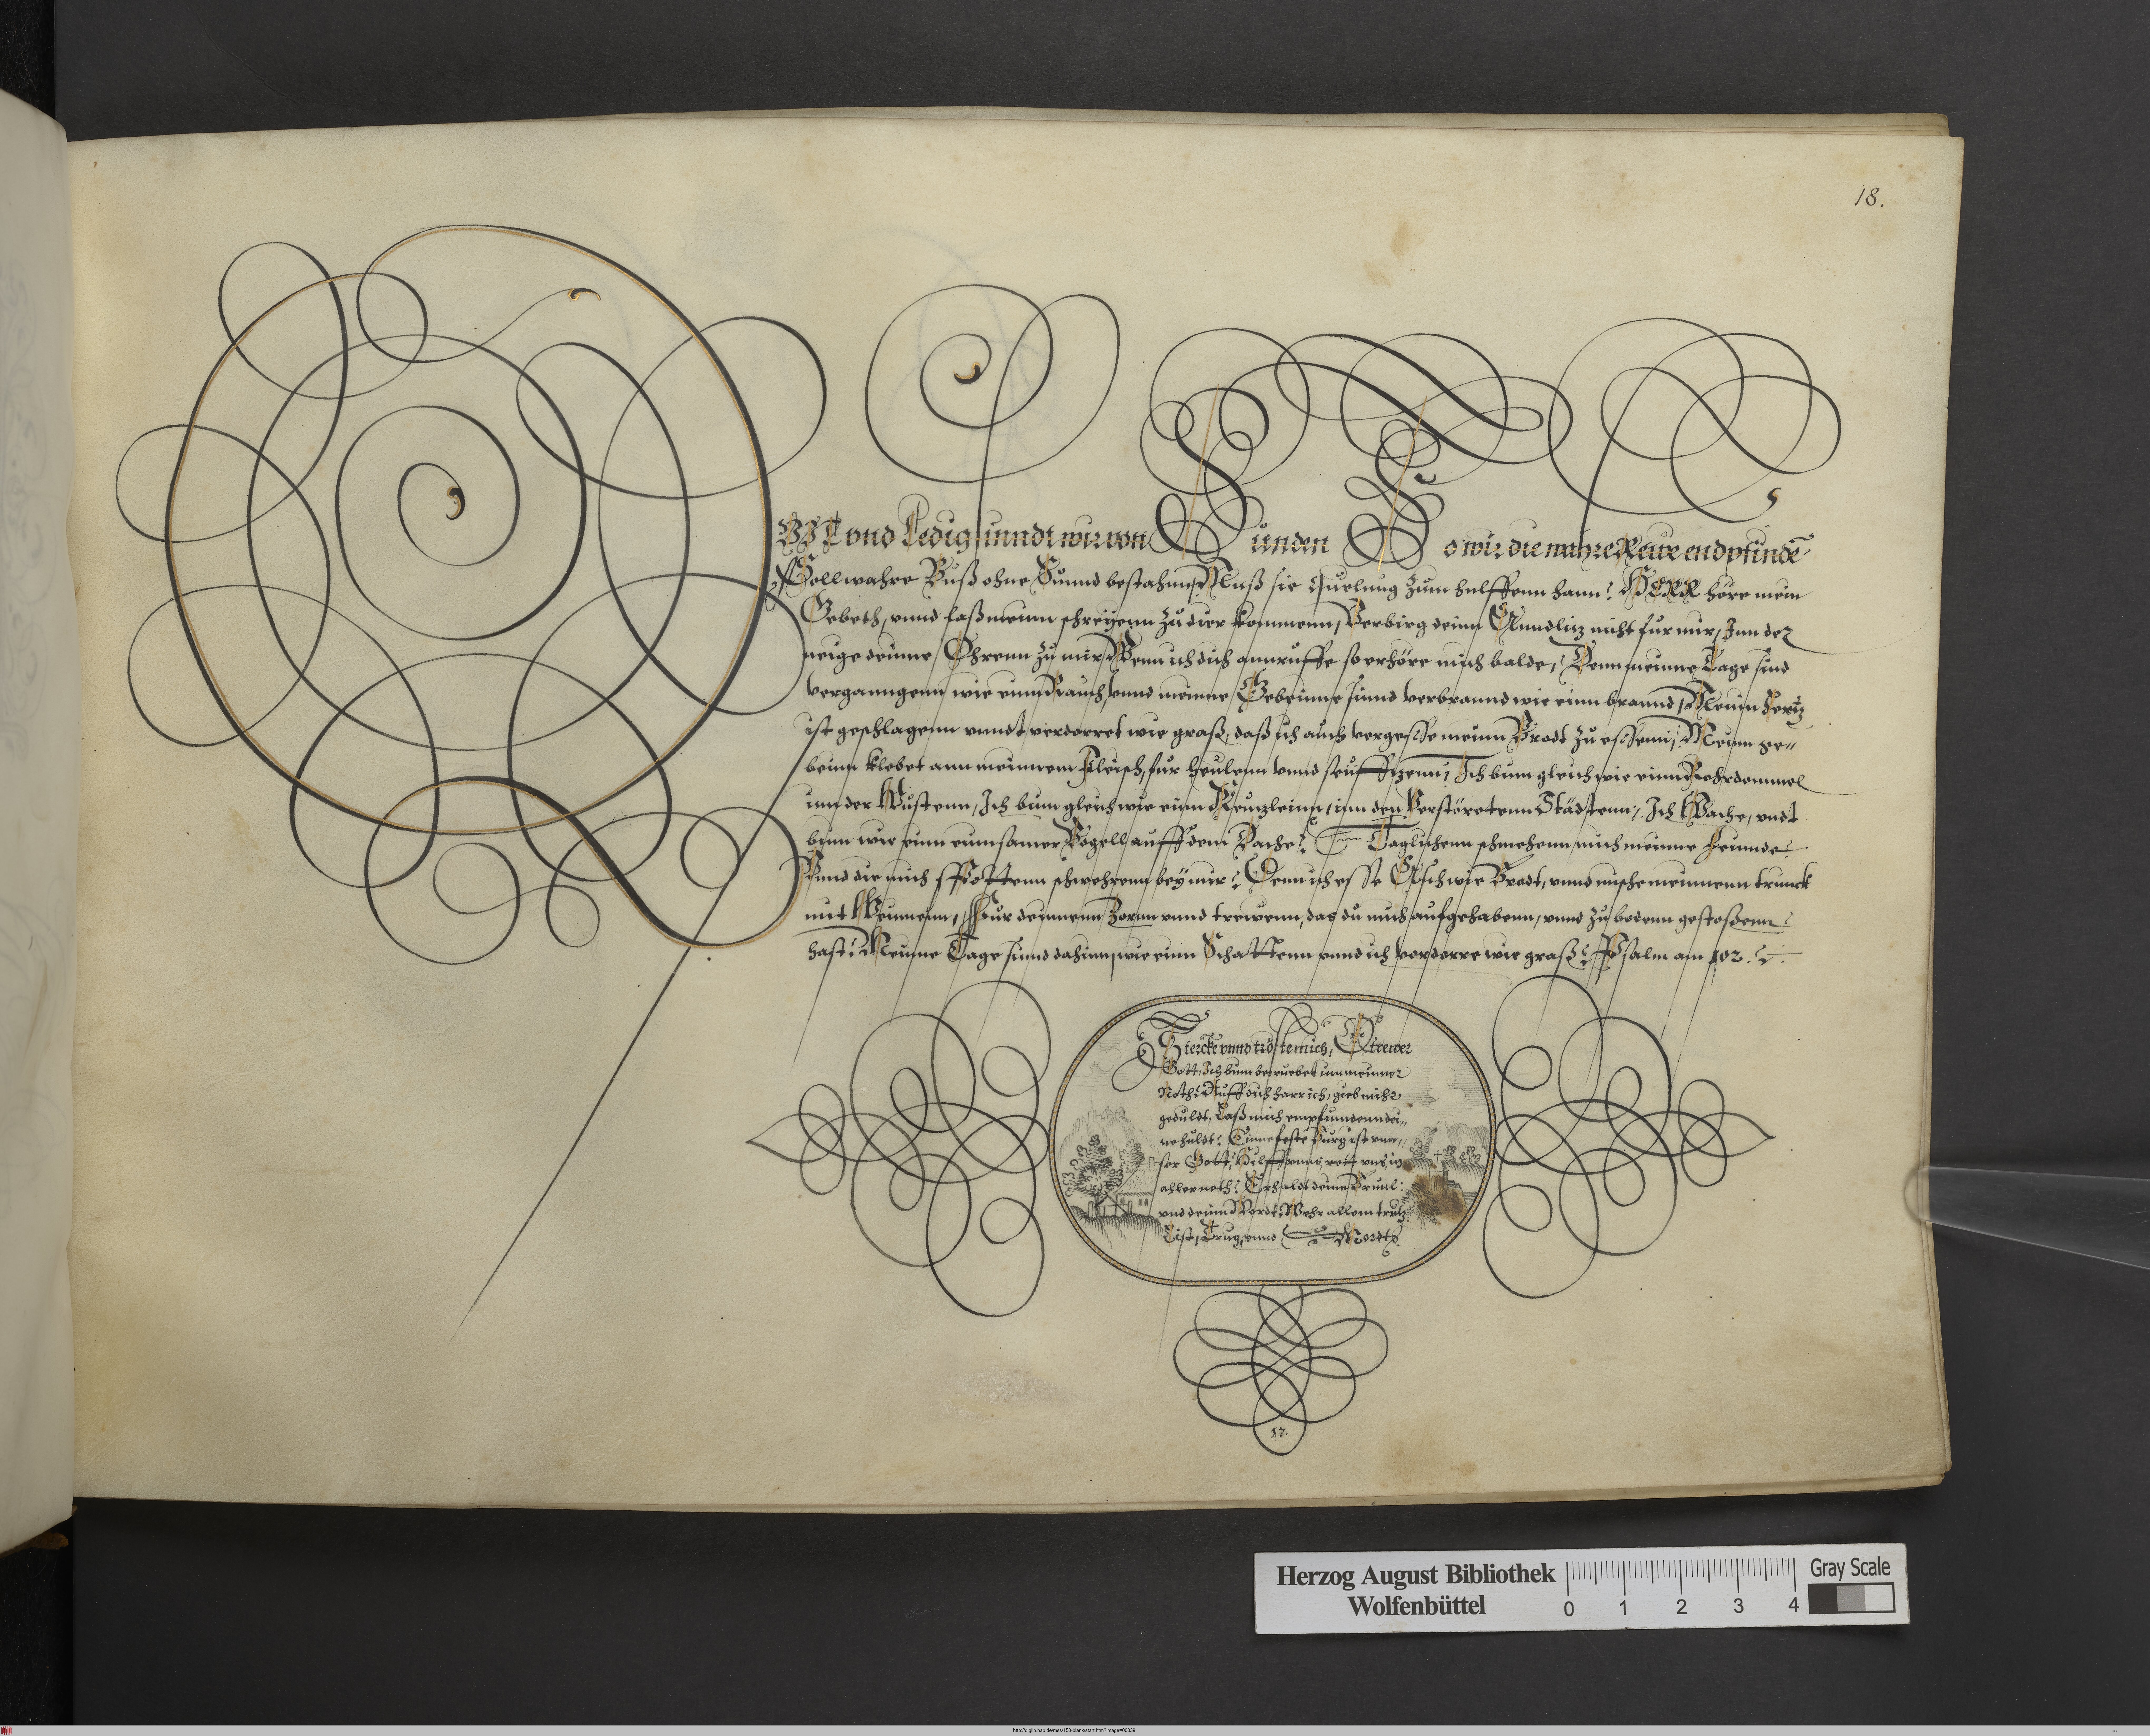 18.
QVJT vnd Ledig sinndt wir von Sünden So wir die wahre Rewe endpfinde
Soll wahre Buß ohne Sünnd bestahnn, Muß sie Quelung zum hülffenn hann? HERR höre mein
Gebeth, vnnd laß meinn schreyenn zu dier kommenn, Verbirg deinn Anndlitz nicht fur mir, Inn der
neige deinne Ohrenn zu mir, Wenn ich dich annruffe so erhöre mich balde, Denn meinne Tage sind
verganngenn wie einn Rauch, vnnd meinne Gebeinne sinnd verbrannd wie einn brannd, Mein hertz
ist geschlagenn vnndt verdorret wie graß, daß ich auch vergesse meinn Brodt zu essenn, Meinn ge-
beinn klebet ann meinnem Fleisch, fur heulenn vnnd seuffzenn, Ich binn gleich wie einn Rohrdommel
inn der Wüstenn, Ich binn gleich wie einn Keuzleinn, inn den Verstöretenn Städtenn, Ich Wache, vndt
binn wie einn einnsamer Vogell auff dem Dache? Taglichenn schmehenn mich meinne feinnde
Vnnd die mich spottenn schwehrenn bey mir? Denn ich esse Asch wie Brodt, vnnd mische meinnenn trunck
mit Weinnenn, Fur deinnenn Zornn vnnd trewenn, das du mich aufgehabenn, vnnd zu bodenn gestoßenn
hast? Meinne Tage sinnd dahinn, wie einn Schattenn vnnd ich verdorre wie graß? Psalm am 102.
Stercke vnnd tröste mich, O trewer
Gott, Ich binn betruebet inn meinner
Noth? Auff dich harr ich, gieb mihr
gedult, Laß mich empfinndenn dei-
ne huldt? Einne feste Burg ist vnn-
ser Gott, Hilff vnns, rett vns in
aller noth? Erhalt deinn Heuul
vnd deinn Wordt, Wehr allem trutz
List, Trug, vnnd Mordt
17.
Herzog August Bibliothek
Wolfenbüttel
0 1 2 3 4
Gray Scale
http://diglib.hab.de/mss/150-blank/start.htm?image=00039